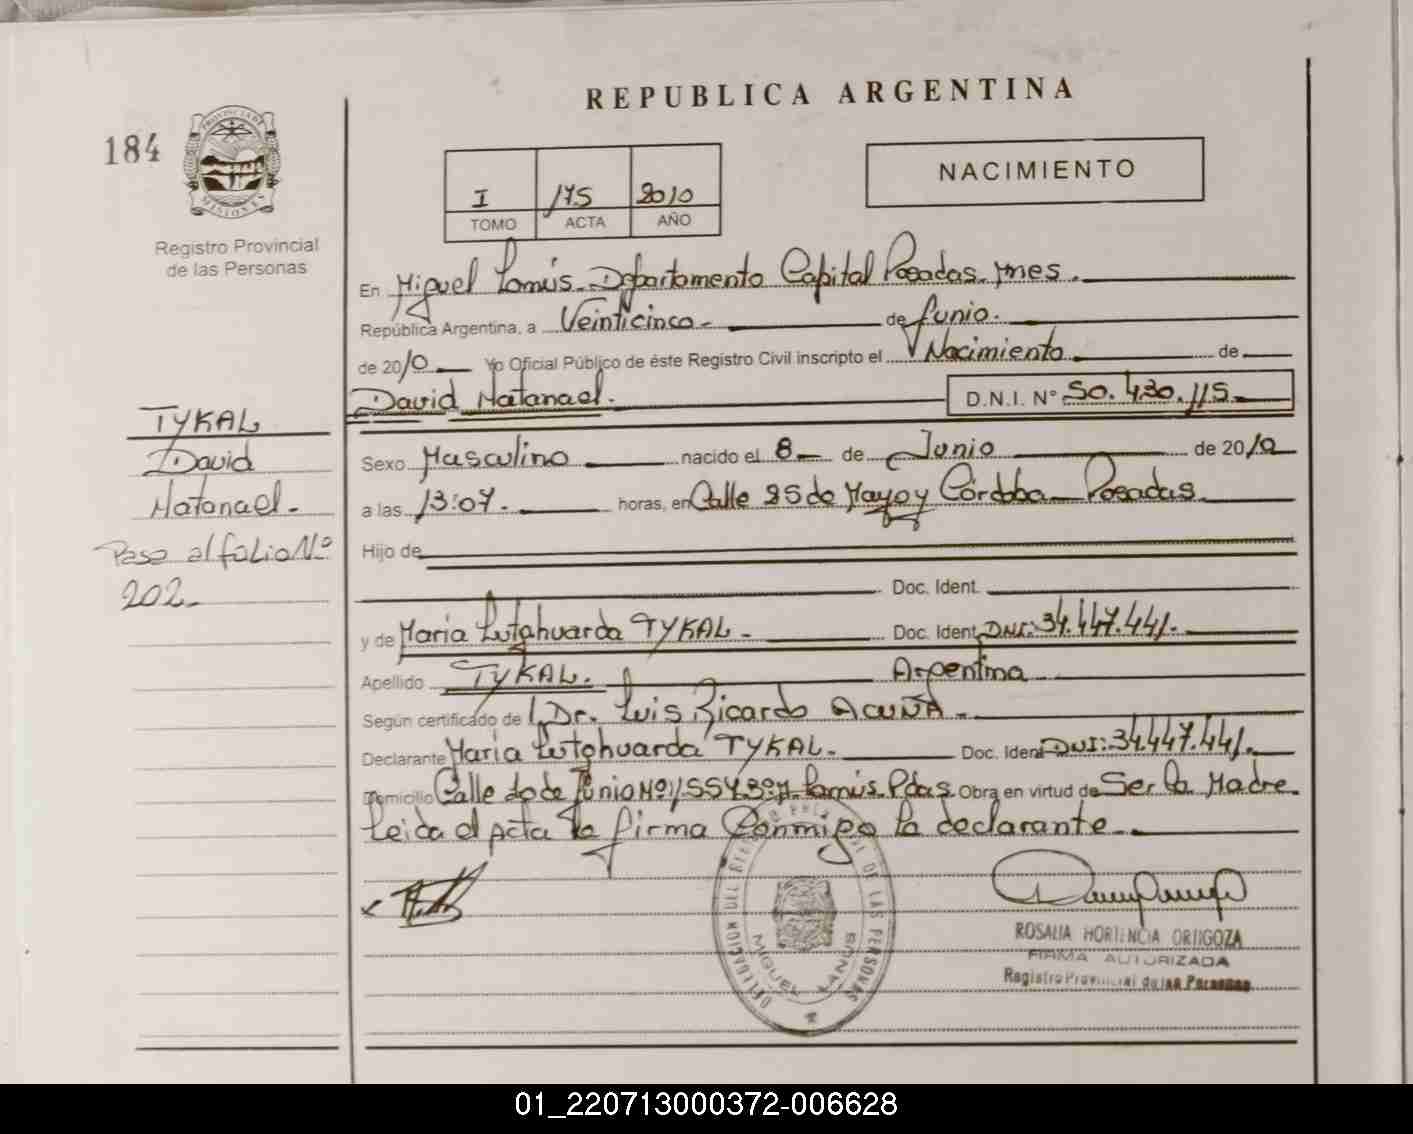 REPUBLICA ARGENTINA
184
PROVINCIA DE MISIONES
Registro Provincial
de las Personas
I 175 2010
TOMO ACTA AÑO
NACIMIENTO
En Miguel Lanús. Departamento Capital Posadas. Mnes.
República Argentina, a Veinticinco.- de Junio.
de 2010 Yo Oficial Público de éste Registro Civil inscripto el Nacimiento de
David Natanael. D.N.I. N° 50.430.115
TYKAL
David
Natanael.-
Pasa al folio Nº
202.-
Sexo Masculino nacido el 8 de Junio de 2010
a las 13:07. horas, en Calle 25 de Mayo y Córdoba Posadas
Hijo de
Doc. Ident.
y de María Lutghuarda TYKAL.- Doc. Ident. DNI: 34.447.441.
Apellido TYKAL. Argentina
Según certificado de Dr. Luis Ricardo ACUÑA.-
Declarante María Lutghuarda TYKAL.- Doc. Ident. DNI: 34.447.441.
Domicilio Calle de Junio Nº Lanús. Pdas Obra en virtud de Ser la Madre.
Leida el Acta la firma Conmigo la declarante.
DELEGACION DEL REGISTRO PROVINCIAL DE LAS PERSONAS
MIGUEL LANUS
ROSALIA HORTENCIA ORTIGOZA
FIRMA AUTORIZADA
Registro Provincial de las Personas
01_220713000372-006628